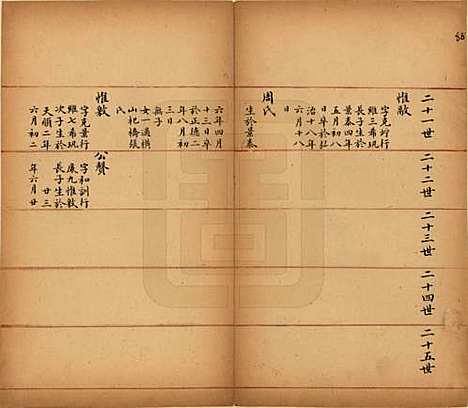 二十一世
二十二世
二十三世
二十四世
二十五世
惟敬
字克
行
維三希珮
長子生於
景泰四年
五月
日卒於弘
治十八年
六月十八
日
周氏
生於景泰
六年四月
十三日卒
於正德二
年八月初
三日
無子
女一適橫
山祀橋張
氏
惟敦
字克景行
維七希珮
次子生於
天順二年
六月初二
公贊
字和訓行
廉九惟敦
長子生於
廿三
年六月廿